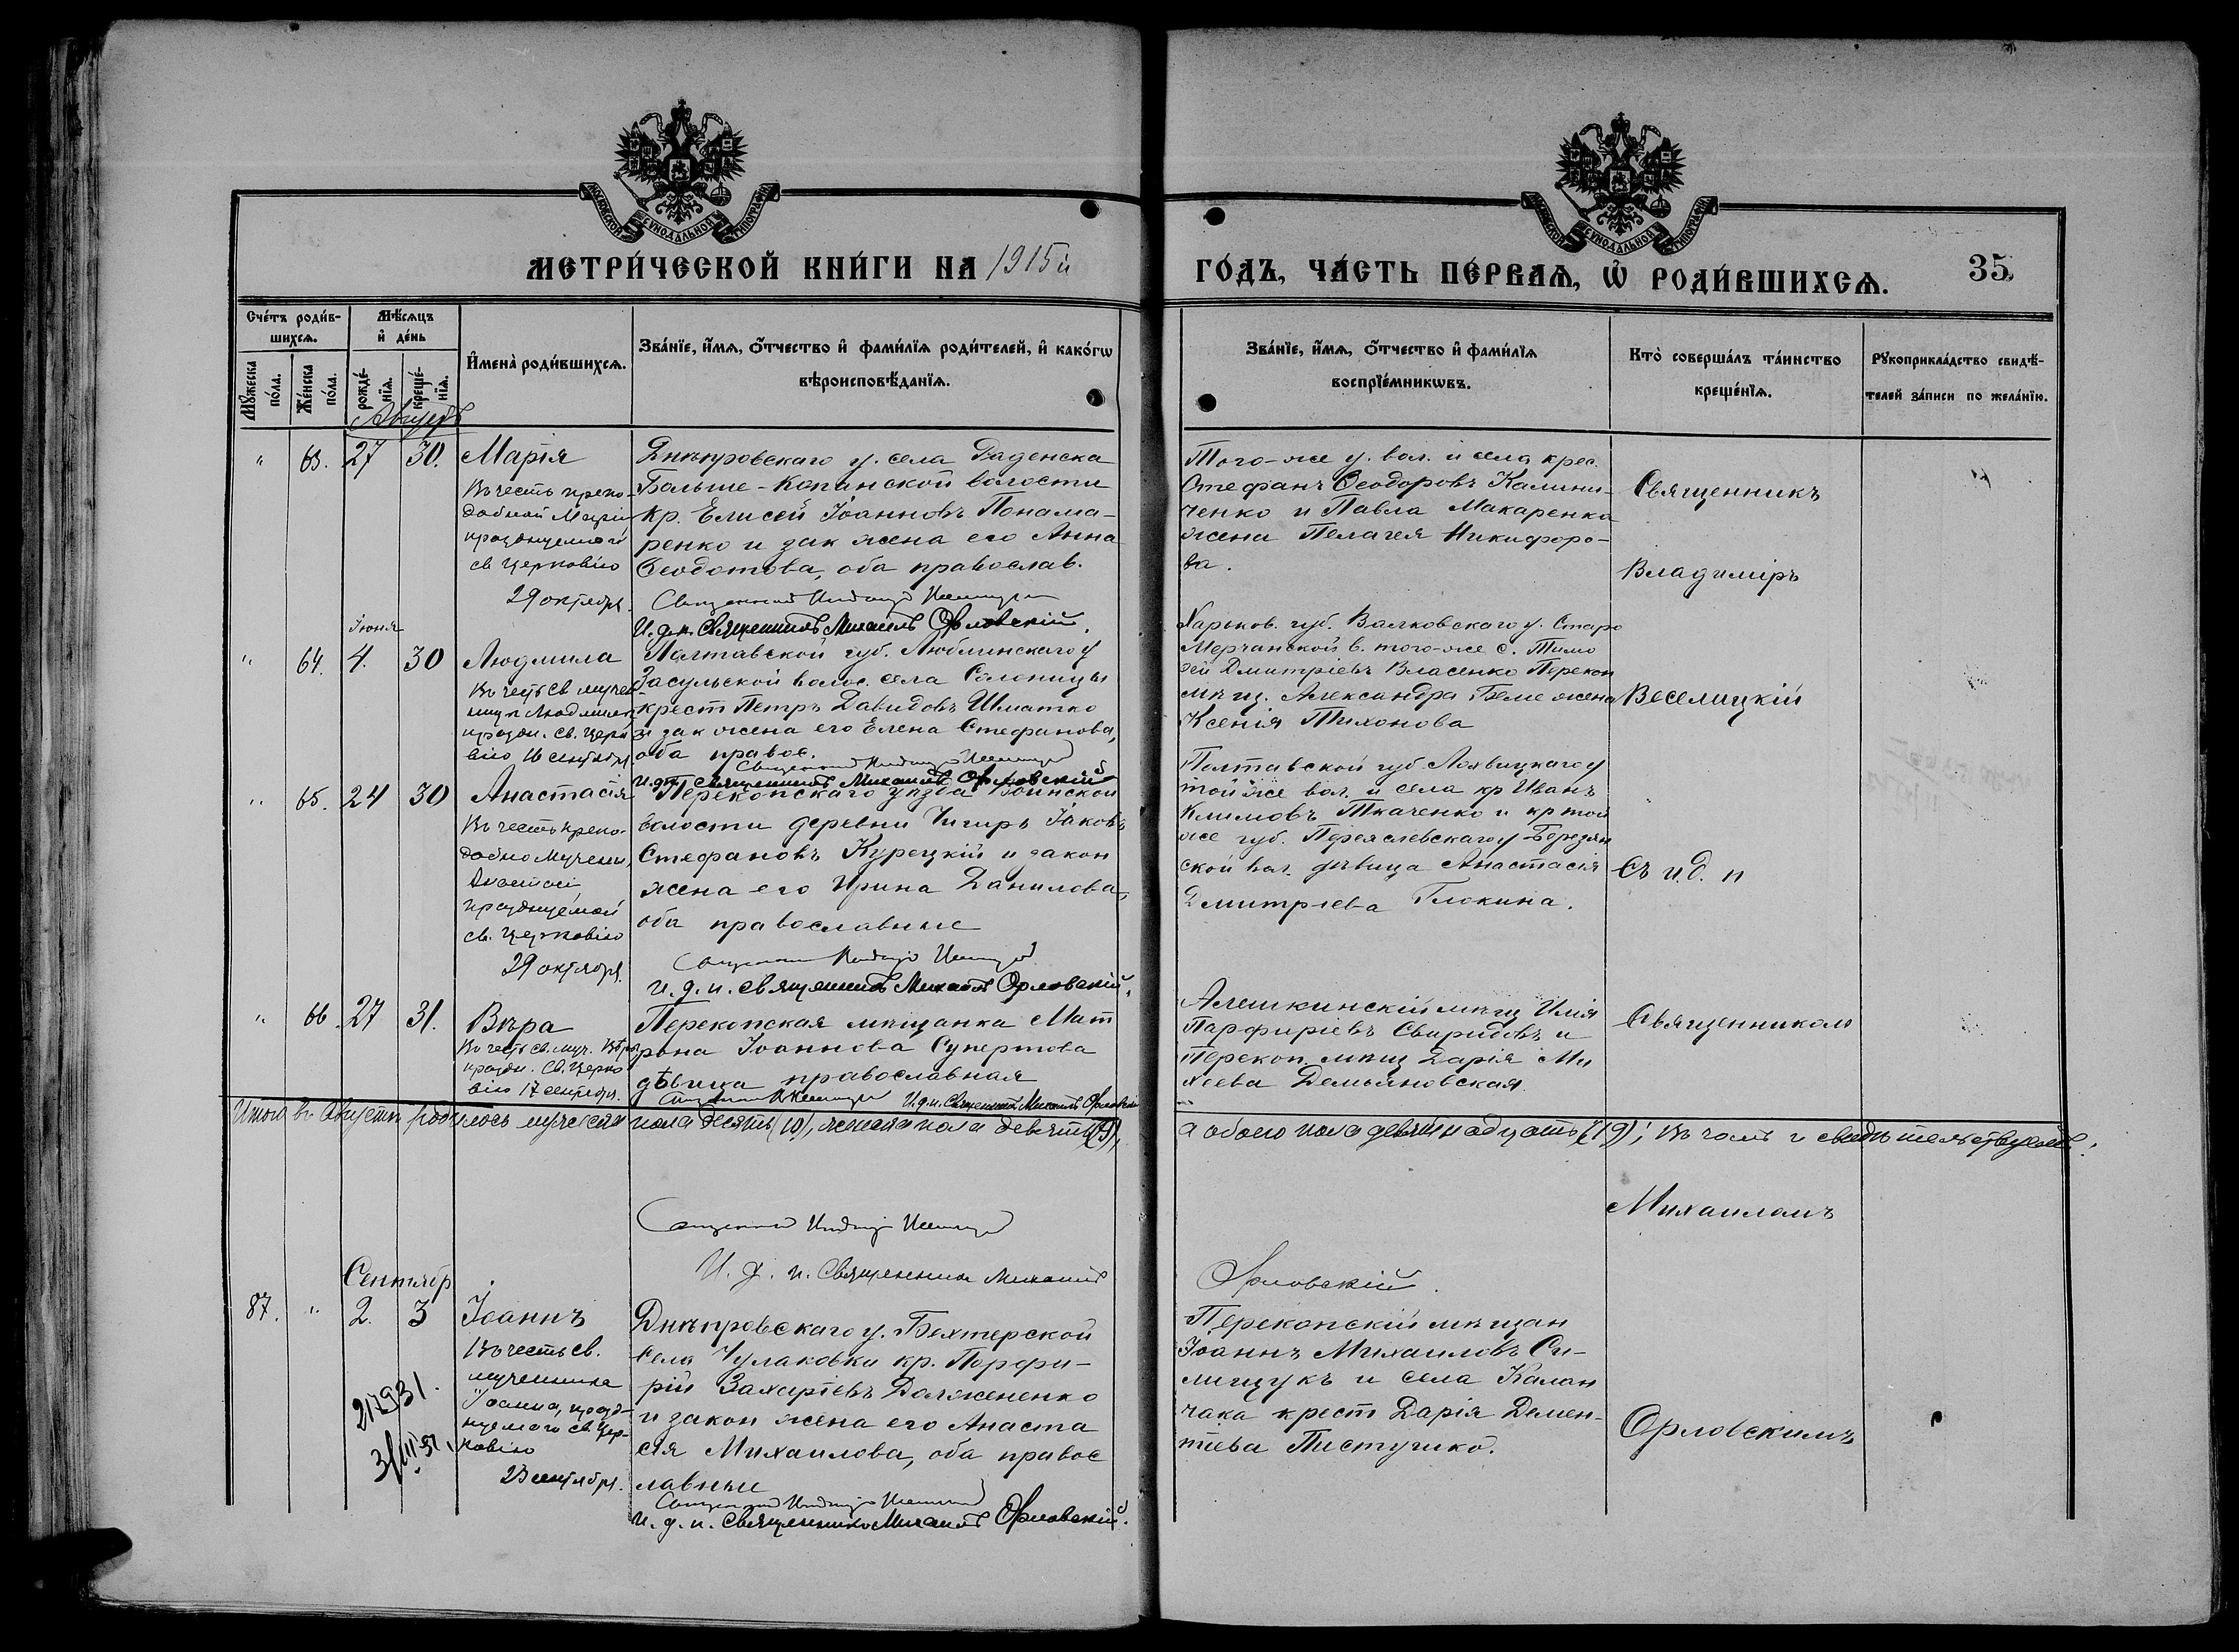 МОСКОВСКОЙ СѴНОДАЛЬНОЙ ТИПОГРАФІИ
МОСКОВСКОЙ СѴНОДАЛЬНОЙ ТИПОГРАФІИ
МЕТРИ́ЧЕСКОЙ КНИ́ГИ НА 1915й
ГО́ДЪ, ЧА́СТЬ ПЕ́РВАѦ, Ѡ҆ РОДИ́ВШИХСѦ.
35
Сче́тъ роди́в-
шихсѧ.
Мꙋ́жеска по́ла.
Же́нска по́ла.
Мѣ́сѧцъ
и҆ де́нь
рожде́-нїѧ.
креще́-нїѧ.
И҆мена̀ роди́вшихсѧ.
Зва́нїе, и҆́мѧ, ѻ҆́тчество и҆ фами́лїѧ роди́телей, и҆ како́гѡ
вѣроисповѣ́данїѧ.
Зва́нїе, и҆́мѧ, ѻ҆́тчество и҆ фами́лїѧ
воспрїе́мникѡвъ.
Кто̀ соверша́лъ та́инство
креще́нїѧ.
Рꙋкоприкла́дство свидѣ́-
телей за́писи по жела́нїю.
Августъ
" 63. 27 30. Марія
Въ честь препо-
добной Маріи
празднуемой
св церковію
29 октября.
Днѣпровскаго у. села Раденска
Больше-Копанской волости
Кр. Елисей Іоанновъ Понама-
ренко и зак жена его Анна
Ѳеодотова, оба православ.
И. д. п. Священникъ Михаилъ Орловскій.
Того-же у. вол. и села крес.
Стефанъ Ѳеодоровъ Калини-
ченко и Павла Макаренка
жена Пелагея Никифоро-
ва.
Священникъ
Владиміръ
Іюня
" 64. 4. 30 Людмила
Въ честь св мучен
ницы Людмилы
праздн. св. церк
вію 16 сентября.
Полтавской губ. Лубминскаго у
Засульской волос. села Солоницы
крест Петръ Давидовъ Шматко
и зак жена его Елена Стефанова,
оба правос.
И. д. п. Священникъ Михаилъ Орловскій
Харьков. губ. Валковскаго у. Старо
Мерчанской в. того-же с. Тимо
ѳей Дмитріевъ Власенко Перекоп
мѣщ. Александра Беме жена
Ксенія Тихонова
Веселицкій
" 65. 24 30 Анастасія
Въ честь препо-
добномучени,
празднуемой
св. церковію
29 октября.
Перекопскаго уѣзда Воинской
волости деревни Чигиръ Іаковъ
Стефановъ Курецкій и закон
жена его Ирина Данилова,
оба православные
И. д. п. священникъ Михаилъ Орловскій.
Полтавской губ Лохвицкаго у
той же вол. и села кр Иванъ
Климовъ Ткаченко и кр той
же губ. Переяслевскаго у Березян
ской вол. дѣвица Анастасія
Дмитріева Глокина.
Съ и. д. п
" 66. 27 31. Вѣра
Въ честь св. муч. Вѣры
праздн. св. церко
вію 17 сентября.
Перекопская мѣщанка Мат
рона Іоаннова Супертова
дѣвица православная
И. д. п. Священникъ Михаилъ Орловскій
Алешкинскій мѣщ Илія
Парфиріевъ Свиридовъ и
Перекоп. мѣщ Дарія Ми
хеева Демьяновская.
Священникомъ
Итого въ Августѣ родилось мужескаго пола десять (10), женска пола девять (9),
а обоего пола девятнадцать (19); въ чемъ и свидѣтельствуемъ:
И. д. п. Священникъ Михаилъ
Орловскій.
Михаиломъ
Сентябр
87. " 2. 3 Іоаннъ
Въ честь св.
мученика
Іоанна, празд-
нуемаго св. цер-
ковію
2 сентября.
21793/.
3/III 51.
Днѣпровскаго у. Бехтерской
села Чулаковки кр. Порфи-
рій Захаріевъ Должененко
и закон жена его Анаста
сія Михаилова, оба правос
лавные
И. д. п. Священникъ Михаилъ Орловскій.
Перекопскій мѣщан
Іоаннъ Михаиловъ Си-
мищукъ и села Калан
чака крест Дарія Демен-
тіева Пистушко.
Орловскимъ